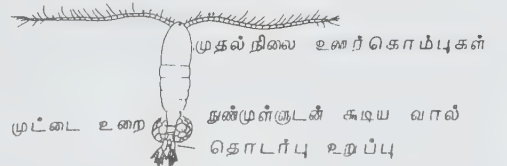 முதல்நிலை உணர்கொம்புகள்
முட்டை உறை
நுண்முள்ளுடன் கூடிய வால்
தொடர்பு உறுப்பு